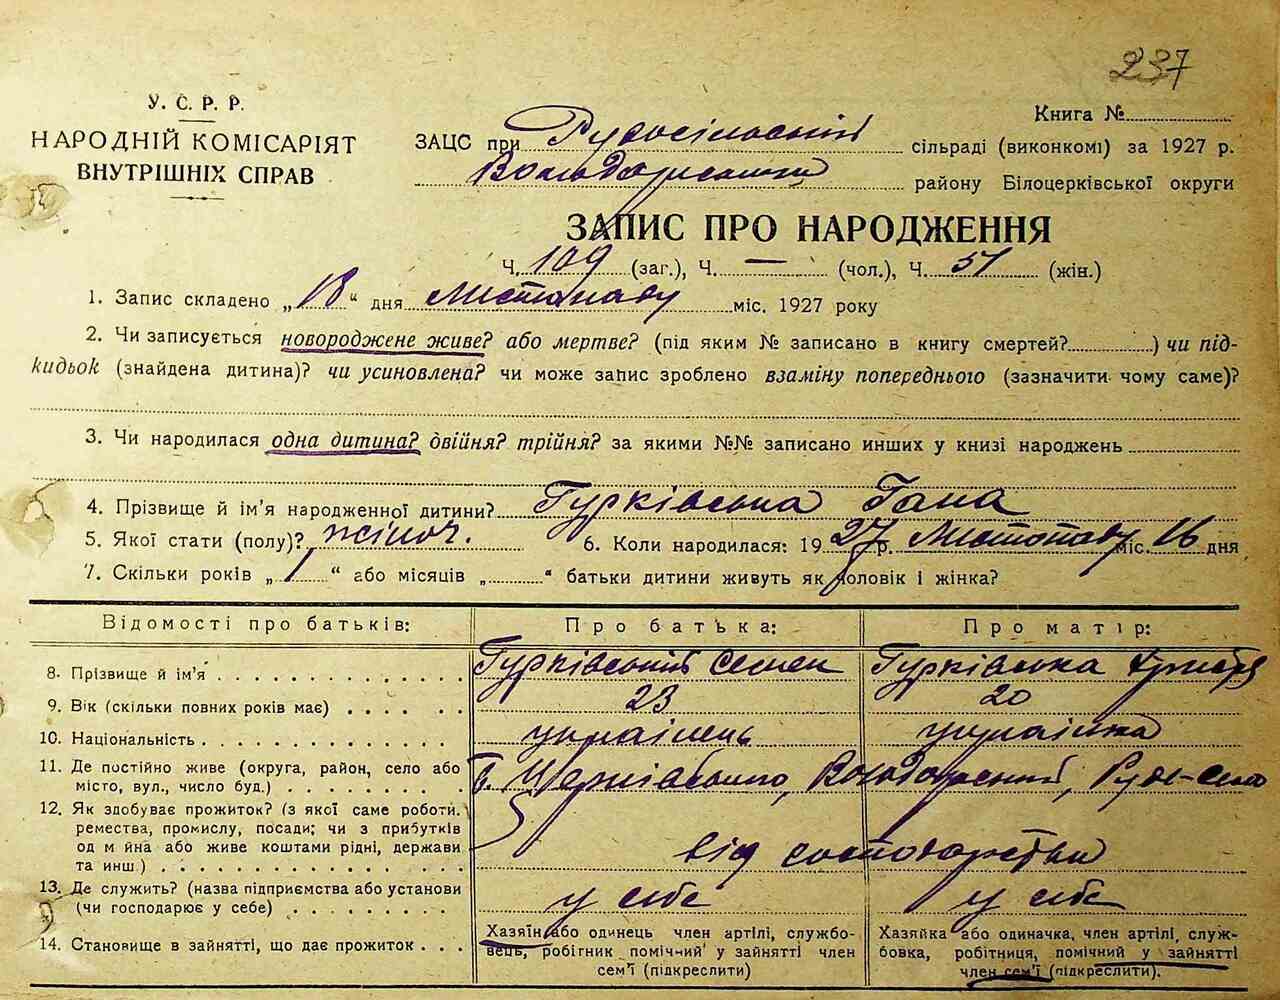 237
У. С. Р. Р.
НАРОДНІЙ КОМІСАРІЯТ
ВНУТРІШНІХ СПРАВ
Книга №
ЗАЦС при Рудосільській сільраді (виконкомі) за 1927 р.
Володарського району Білоцерківської округи
ЗАПИС ПРО НАРОДЖЕННЯ
Ч. 109 (заг.), Ч. — (чол.), Ч. 51 (жін.)
1. Запис складено „18“ дня Листопаду міс. 1927 року
2. Чи записується новороджене живе? або мертве? (під яким № записано в книгу смертей?) чи під-
кидьок (знайдена дитина)? чи усиновлена? чи може запис зроблено взаміну попереднього (зазначити чому саме)?
3. Чи народилася одна дитина? двійня? трійня? за якими №№ записано инших у книзі народжень
4. Прізвище й ім'я народженної дитини? Гурківська Гана
5. Якої стати (полу)? жіноч. 6. Коли народилася: 1927 р. Листопаду міс. 16 дня
7. Скільки років „1“ або місяців „ “ батьки дитини живуть як чоловік і жінка?
Відомості про батьків: Про батька: Про матір:
8. Прізвище й ім'я Гурківський Семен Гурківська
9. Вік (скільки повних років має) 23 20
10. Національність українець українка
11. Де постійно живе (округа, район, село або
місто, вул., число буд.) Б. Церківського, Володарський, Рудо-Село
12. Як здобуває прожиток? (з якої саме роботи.
ремества, промислу, посади; чи з прибутків
од м йна або живе коштами рідні, держави
та инш) від господарства
13. Де служить? (назва підприємства або установи
(чи господарює у себе) у себе у себе
14. Становище в зайнятті, що дає прожиток
Хазяїн або одинець член артілі, службо-
вець, робігник помічний у зайнятті член
сем'ї (підкреслити)
Хазяйка або одиначка, член артілі, служ-
бовка, робітниця, помічний у зайнятті
член сем'ї (підкреслити).